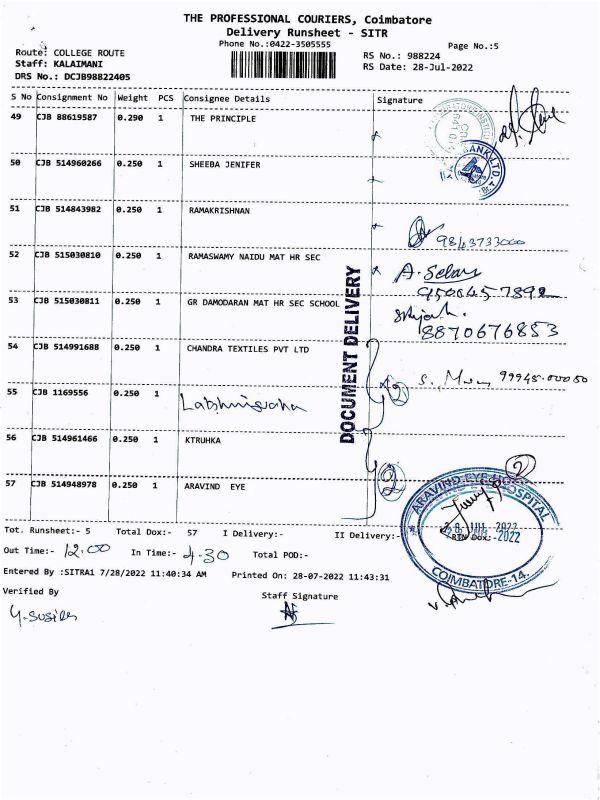 THE PROFESSIONAL COURIERS, Coimbatore
Delivery Runsheet - SITR
Phone No.:0422-3505555
Page No.:5
Route: COLLEGE ROUTE
RS No.: 988224
Staff: KALAIMANI
RS Date: 28-Jul-2022
DRS No.: DCJB98822405
S No Consignment No Weight PCS Consignee Details Signature
49 CJB 88619587 0.290 1 THE PRINCIPLE
50 CJB 514960266 0.250 1 SHEEBA JENIFER
BANK LTD.
51 CJB 514843982 0.250 1 RAMAKRISHNAN
9843733000
52 CJB 515030810 0.250 1 RAMASWAMY NAIDU MAT HR SEC
A. Selvi
53 CJB 515030811 0.250 1 GR DAMODARAN MAT HR SEC SCHOOL
8870676853
DOCUMENT DELIVERY
54 CJB 514991688 0.250 1 CHANDRA TEXTILES PVT LTD
2
55 CJB 1169556 0.250 1
56 CJB 514961466 0.250 1 KTRUHKA
2
2
57 CJB 514948978 0.250 1 ARAVIND EYE
ARAVIND EYE HOSPITAL
28 JUL 2022
COIMBATORE-14.
Tot. Runsheet:- 5 Total Dox:- 57 I Delivery:- II Delivery:- RTN Dox:-
Out Time:- 12.00 In Time:- 4.30 Total POD:-
Entered By :SITRA1 7/28/2022 11:40:34 AM Printed On: 28-07-2022 11:43:31
Verified By Staff Signature